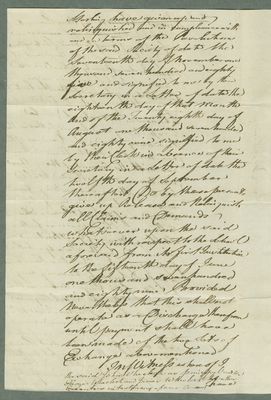 Shooting have given up and
relinquished and in compliance with
and in terms of the Resolution
of the said Society of date the
Seventeenth day of November one
thousand seven hundred and eighty
five and signified to me by the
Secretary in a letter of date the
eighteenth day of that month
And of the Twenty eighth day of
August one thousand seven hundred
and eighty nine signified to me
by their Clerk in absence of their
Secretary in a letter of date the
twelfth day of September
thereafter Do by these presents
give up Release and Relinquish
all Claims and Demands
whatsoever upon the said
Society with respect to the School
aforesaid from the first Institution
to the fifteenth day of June
one thousand seven hundred
and eighty nine Provided
Nevertheless that this shall not
operate as a Discharge therefrom
until payment shall have
been made of the two Sets of
Exchange abovementioned
In Witness whereof I